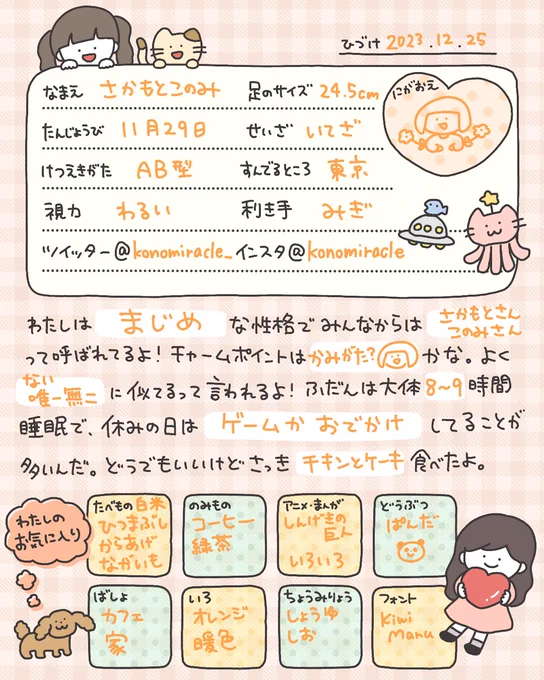 ひづけ 2023.12.25
なまえ さかもとこのみ 足のサイズ 24.5cm
にがおえ
たんじょうび 11月29日 せいざ いてざ
けつえきがた AB型 すんでるところ 東京
視力 わるい 利き手 みぎ
ツイッター@konomiracle_ インスタ@konomiracle
わたしは まじめ な性格でみんなからは さかもとさん
このみさん
って呼ばれてるよ！チャームポイントは かみがた? かな。よく
ない
唯一無二 に似てるって言われるよ！ふだんは大体 8~9 時間
睡眠で、休みの日は ゲームか おでかけ してることが
多いんだ。どうでもいいけどさっき チキンとケーキ 食べたよ。
わたしの
お気に入り
たべもの 白米
ひつまぶし
からあげ
ながいも
のみもの
コーヒー
緑茶
アニメ・まんが
しんげきの
巨人
いろいろ
どうぶつ
ぱんだ
ばしょ
カフェ
家
いろ
オレンジ
暖色
ちょうみりょう
しょうゆ
しお
フォント
Kiwi
Maru